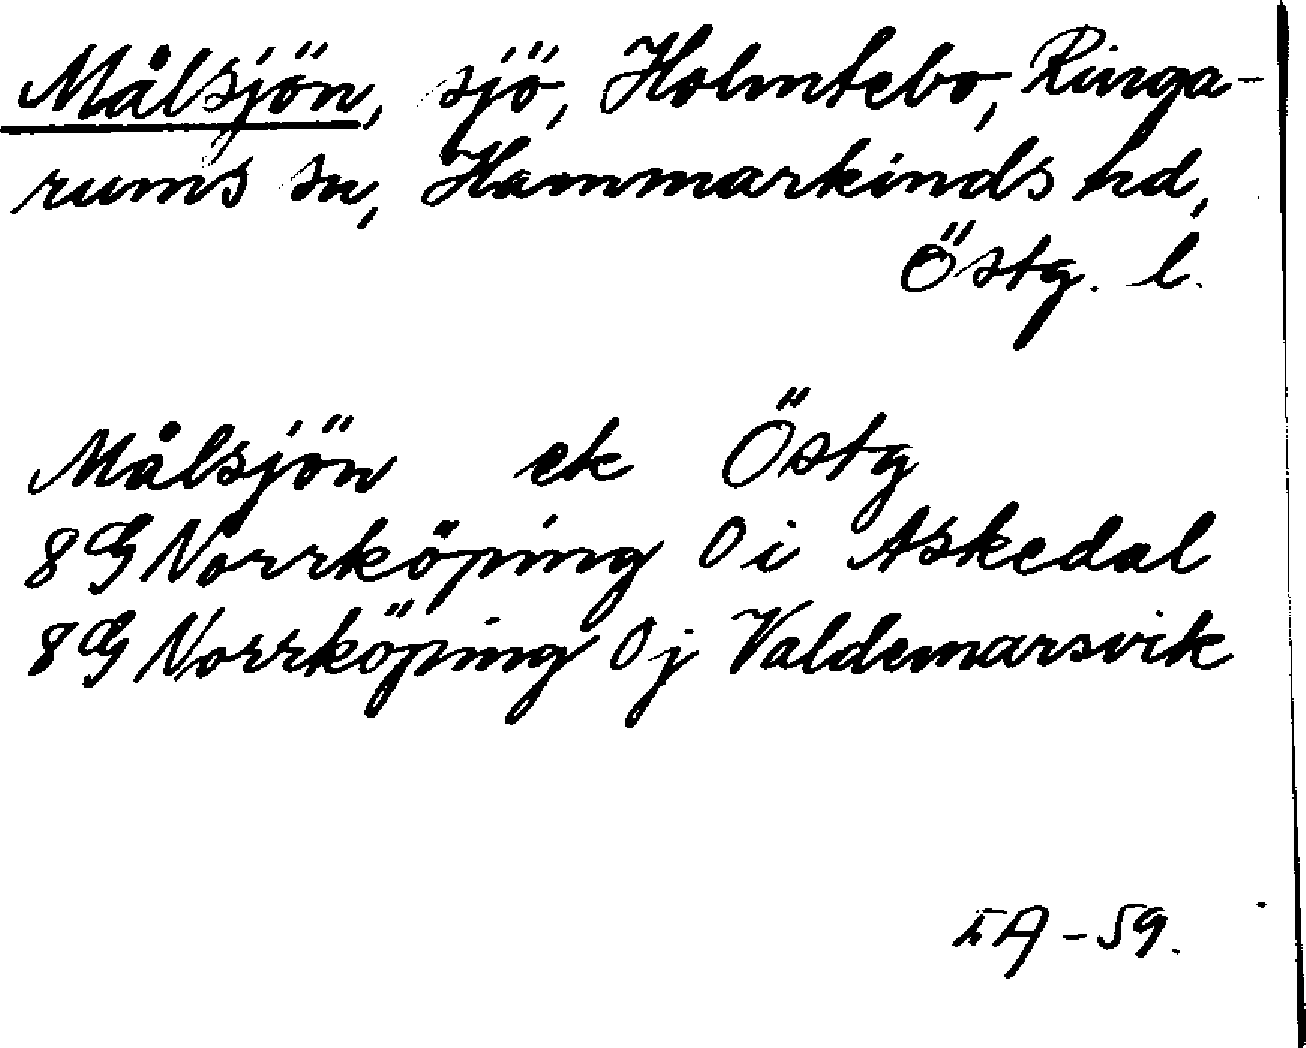 Målsjön, sjö, Holmtebo, Ringa-
rums sn, Hammarkinds hd,
Östg. l.
Målsjön ek Östg
8G Norrköping 0 i Askedal
8G Norrköping 0 j Valdemarsvik
-59.